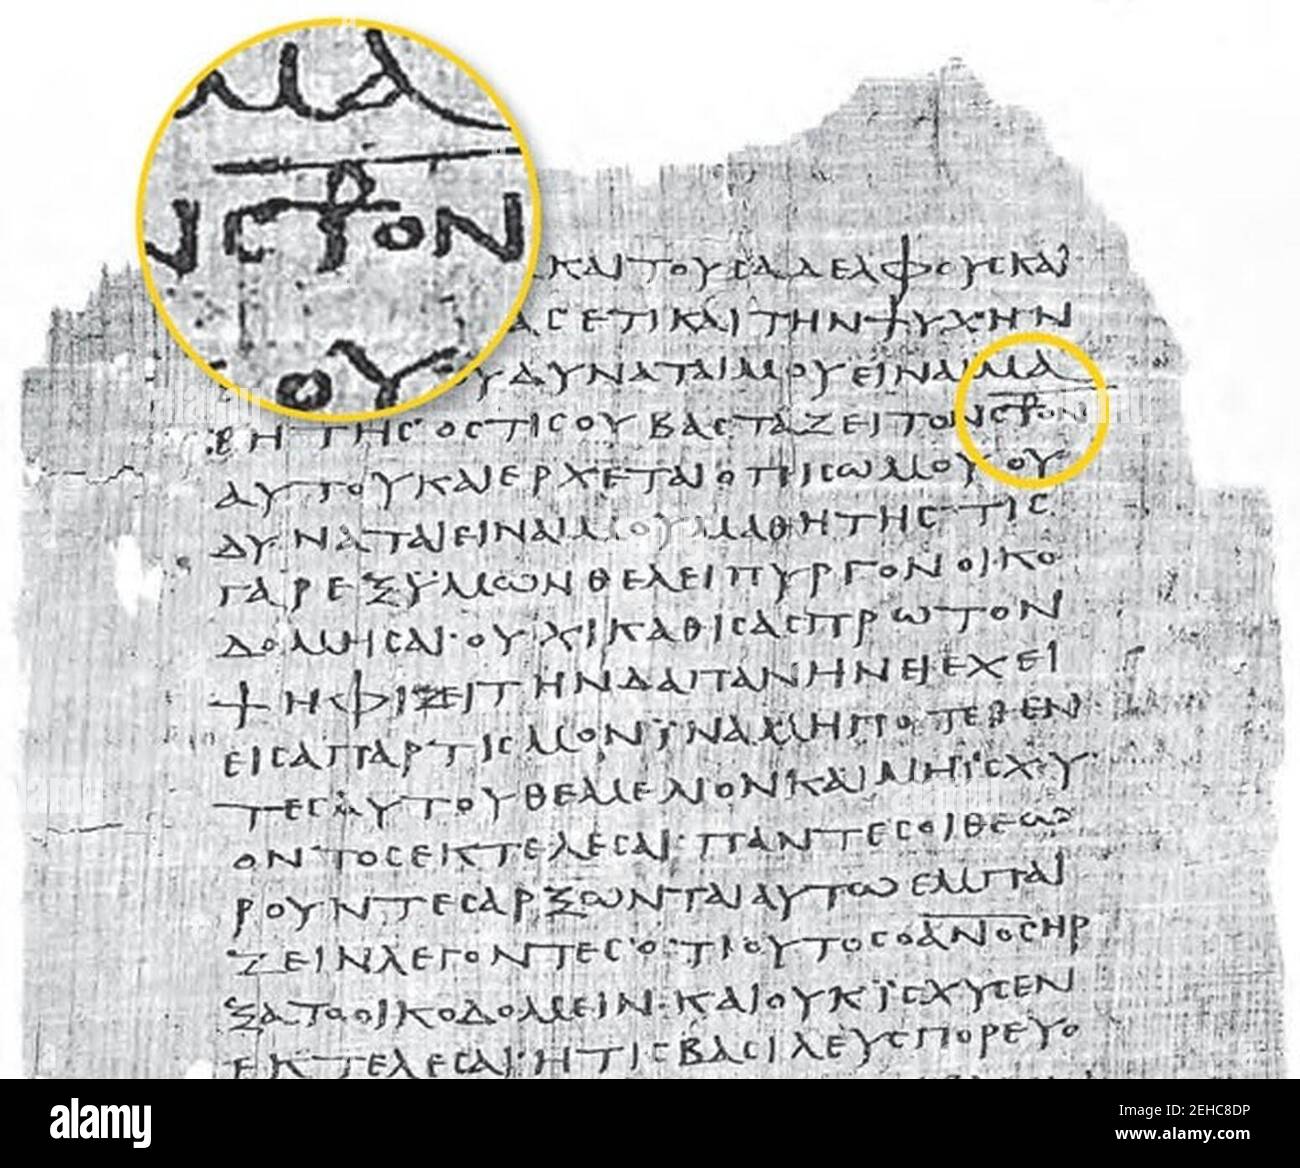 ΚΑΙ ΤΟΥΣ ΑΔΕΛΦΟΥΣ ΚΑΙ
ΑΣ ΕΤΙ ΚΑΙ ΤΗΝ ΨΥΧΗΝ
Υ ΔΥΝΑΤΑΙ ΜΟΥ ΕΙΝΑΙ ΜΑ
ΘΗΤΗΣ ΟΣΤΙΣ ΟΥ ΒΑΣΤΑΖΕΙ ΤΟΝ Σ⳨ΟΝ
ΑΥΤΟΥ ΚΑΙ ΕΡΧΕΤΑΙ ΟΠΙΣΩ ΜΟΥ ΟΥ
ΔΥΝΑΤΑΙ ΕΙΝΑΙ ΜΟΥ ΜΑΘΗΤΗΣ· ΤΙΣ
ΓΑΡ ΕΞ ΫΜΩΝ ΘΕΛΕΙ ΠΥΡΓΟΝ ΟΙΚΟ
ΔΟΜΗΣΑΙ· ΟΥΧΙ ΚΑΘΙΣΑΣ ΠΡΩΤΟΝ
ΨΗΦΙΖΕΙ ΤΗΝ ΔΑΠΑΝΗΝ ΕΙ ΕΧΕΙ
ΕΙΣ ΑΠΑΡΤΙΣΜΟΝ ΪΝΑ ΜΗΠΟΤΕ ΘΕΝ
ΤΕΣ ΑΥΤΟΥ ΘΕΜΕΛΙΟΝ ΚΑΙ ΜΗ ΪΣΧΥ
ΟΝΤΟΣ ΕΚΤΕΛΕΣΑΙ· ΠΑΝΤΕΣ ΟΙ ΘΕΩ
ΡΟΥΝΤΕΣ ΑΡΞΩΝΤΑΙ ΑΥΤΩ ΕΜΠΑΙ
ΖΕΙΝ ΛΕΓΟΝΤΕΣ Ο·ΤΙ ΟΥΤΟΣ Ο Α̅Ν̅Ο̅Σ̅ ΗΡ
ΞΑΤΟ ΟΙΚΟΔΟΜΕΙΝ· ΚΑΙ ΟΥΚ ΪΣΧΥΣΕΝ
ΕΚΤΕΛΕΣΑΙ· Η ΤΙΣ ΒΑΣΙΛΕΥΣ ΠΟΡΕΥΟ
ΜΑ
Ν Σ⳨ΟΝ
ΟΥ
alamy
Image ID: 2EHC8DP
www.alamy.com